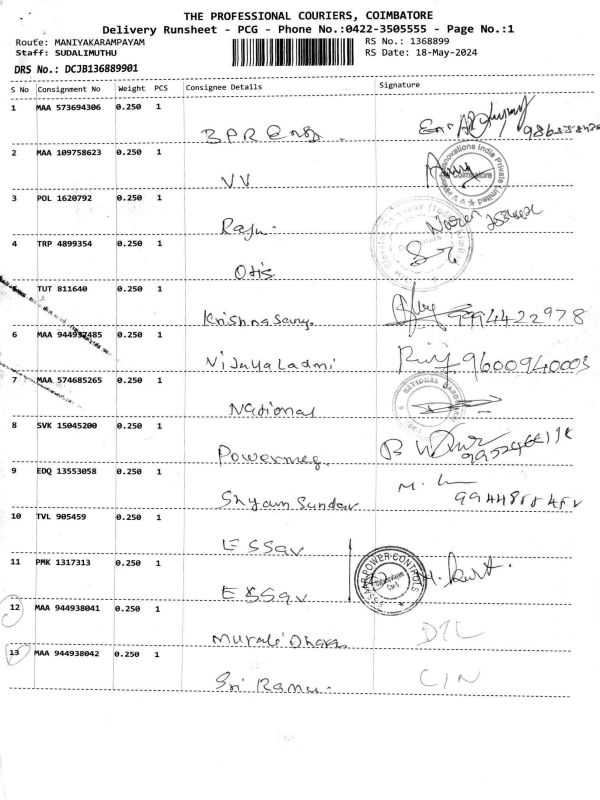 THE PROFESSIONAL COURIERS, COIMBATORE
Delivery Runsheet - PCG - Phone No.:0422-3505555 - Page No.:1
Route: MANIYAKARAMPAYAM RS No.: 1368899
Staff: SUDALIMUTHU RS Date: 18-May-2024
DRS No.: DCJB136889901
S No Consignment No Weight PCS Consignee Details Signature
1 MAA 573694306 0.250 1
BPR Engg.
2 MAA 109758623 0.250 1
VV
3 POL 1620792 0.250 1
Raju.
4 TRP 4899354 0.250 1
Otis
TUT 811640 0.250 1
Krishnasamy. 9994422978
6 MAA 944937485 0.250 1
Vijayaladmi 9600940003
7 MAA 574685265 0.250 1
National
8 SVK 15045200 0.250 1
Powermeg.
9 EDQ 13553058 0.250 1
Shyam Sundar M.
10 TVL 905459 0.250 1
ESSar
11 PMK 1317313 0.250 1
ESSar ESSAR POWER CONTROLS
12 MAA 944938041 0.250 1
Murali Dharan DTL
13 MAA 944938042 0.250 1
Sri Ramu. CIN